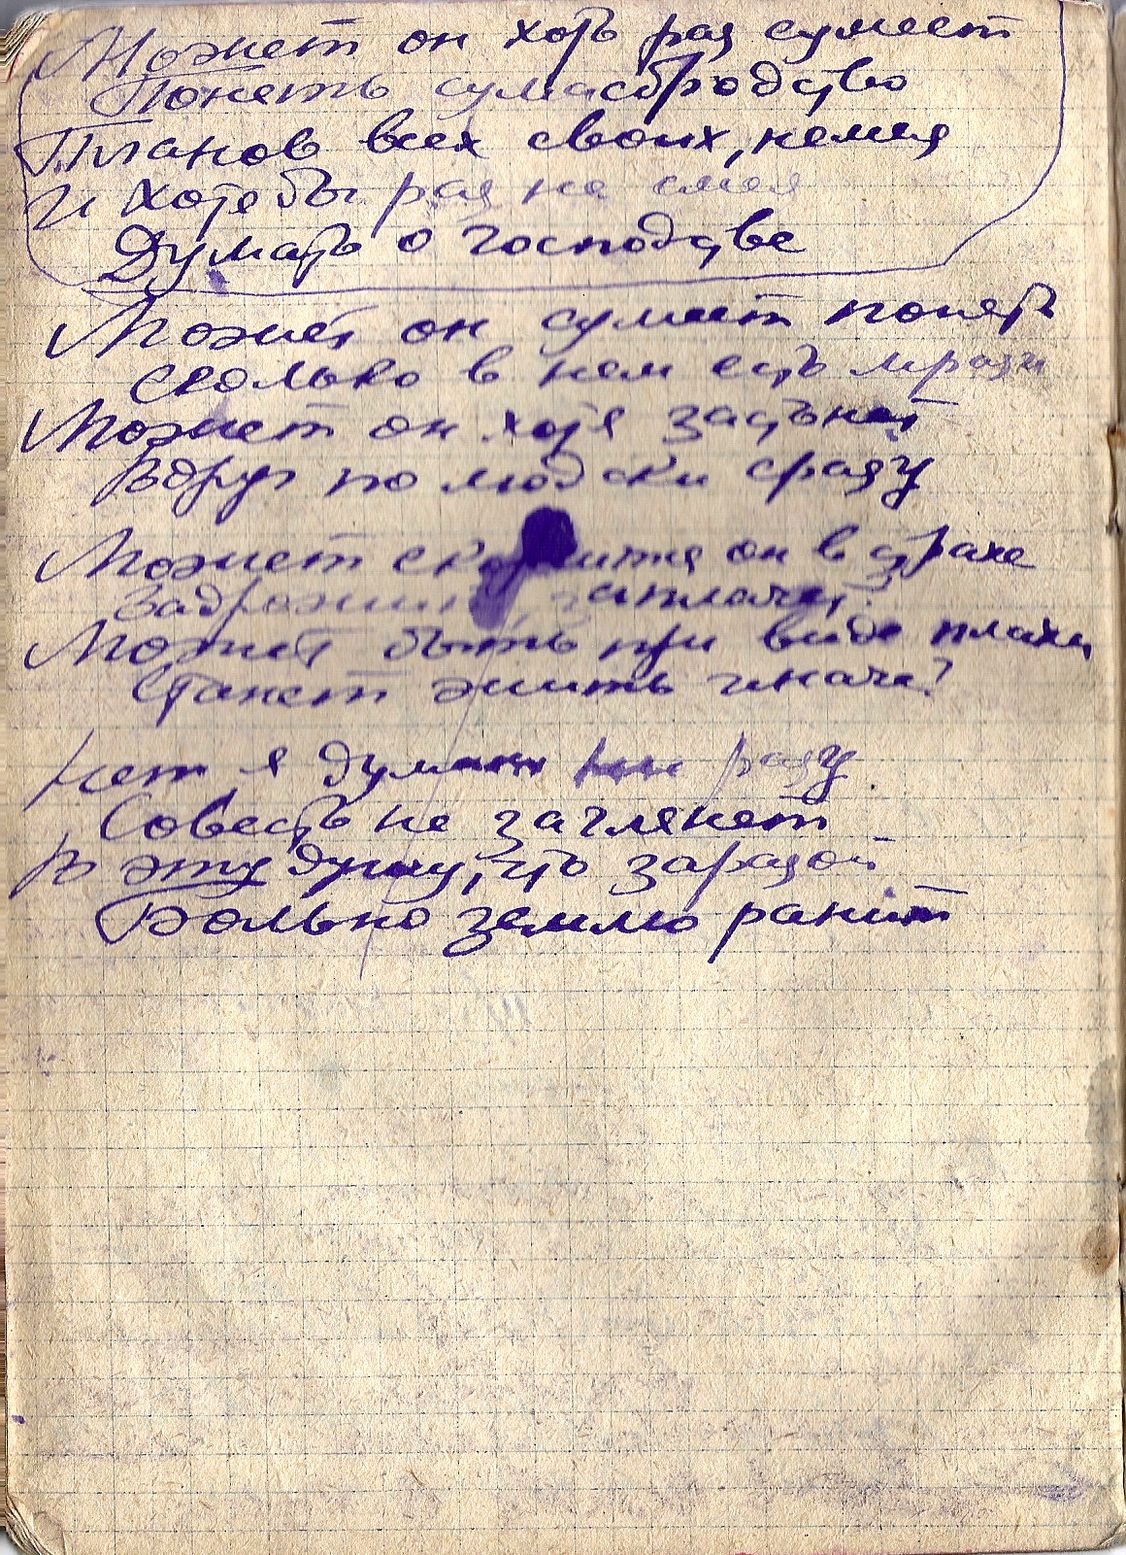 Может он хоть раз сумеет
Понять сумасбродство
Планов всех своих, немея
И хотя бы раз не смея
Думать о господстве
Может он сумеет понять
Сколько в нем есть мрази
Может он хотя застынет
Вдруг по людски сразу
Может скорчится он в страхе
Задрожит, заплачет.
Может быть при виде плахи,
Станет жить иначе?
Нет я думаю ни разу
Совесть не заглянет
В эту душу, что заразой
Больно землю ранит